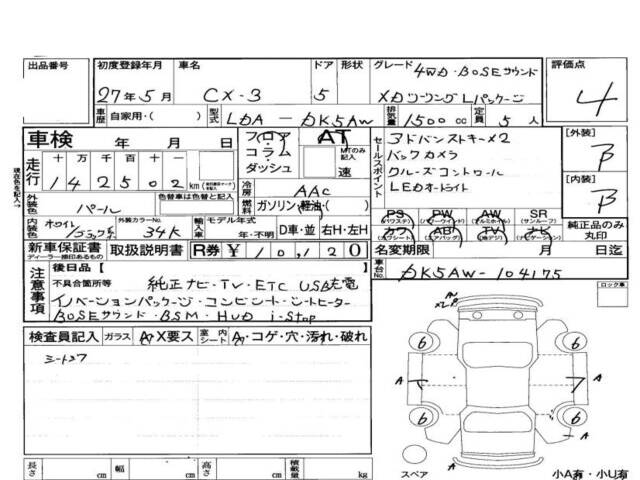 出品番号 初度登録年月 車名 ドア 形状 グレード 4WD・BOSEサウンド 評価点
27年5月 CX-3 5 XDツーリングLパッケージ 4
車歴 自家用・( ) 型式 LDA-DK5AW 排気量 1500cc 定員 5人
車検 年 月 日 フロア・コラム・ダッシュ AT MTのみ記入 速
セールスポイント アドバンストキー×2
バックカメラ
クルーズコントロール
LEDオートライト
[外装] B
[内装] B
走行 十 万 千 百 十 一
142502km
現在色を記入→
冷房 AAC
燃料 ガソリン・軽油・( )
外装色 パール 色替車は色替と記入
内装色 ホワイト 外装カラーNo. 34K 輸入車 モデル年式 年・不明 D車・並 右H・左H
PS (パワステ) PW (パワーウインド) AW (アルミホイル) SR (サンルーフ)
カワ (カワシート) AB (エアバッグ) TV (地デジ) ナビ (ナビゲーション)
純正品のみ丸印
新車保証書 ディーラー捺印あるもの 取扱説明書 R券 ¥10,120
名変期限 月 日迄
注意事項 後日品[ ]
不具合箇所等 純正ナビ・TV・ETC USB充電
イノベーションパッケージ・コンビシート・シートヒーター
BOSEサウンド・BSM・HUD i-stop
車台No. DK5AW-104175
ロック車
検査員記入 ガラス A・X要ス 室内シート A・コゲ・穴・汚れ・破れ
シートスア
A
6 6
A A
6 6
A
スペア
小A有・小U有
長さ cm 幅 cm 高さ cm 積載量 kg